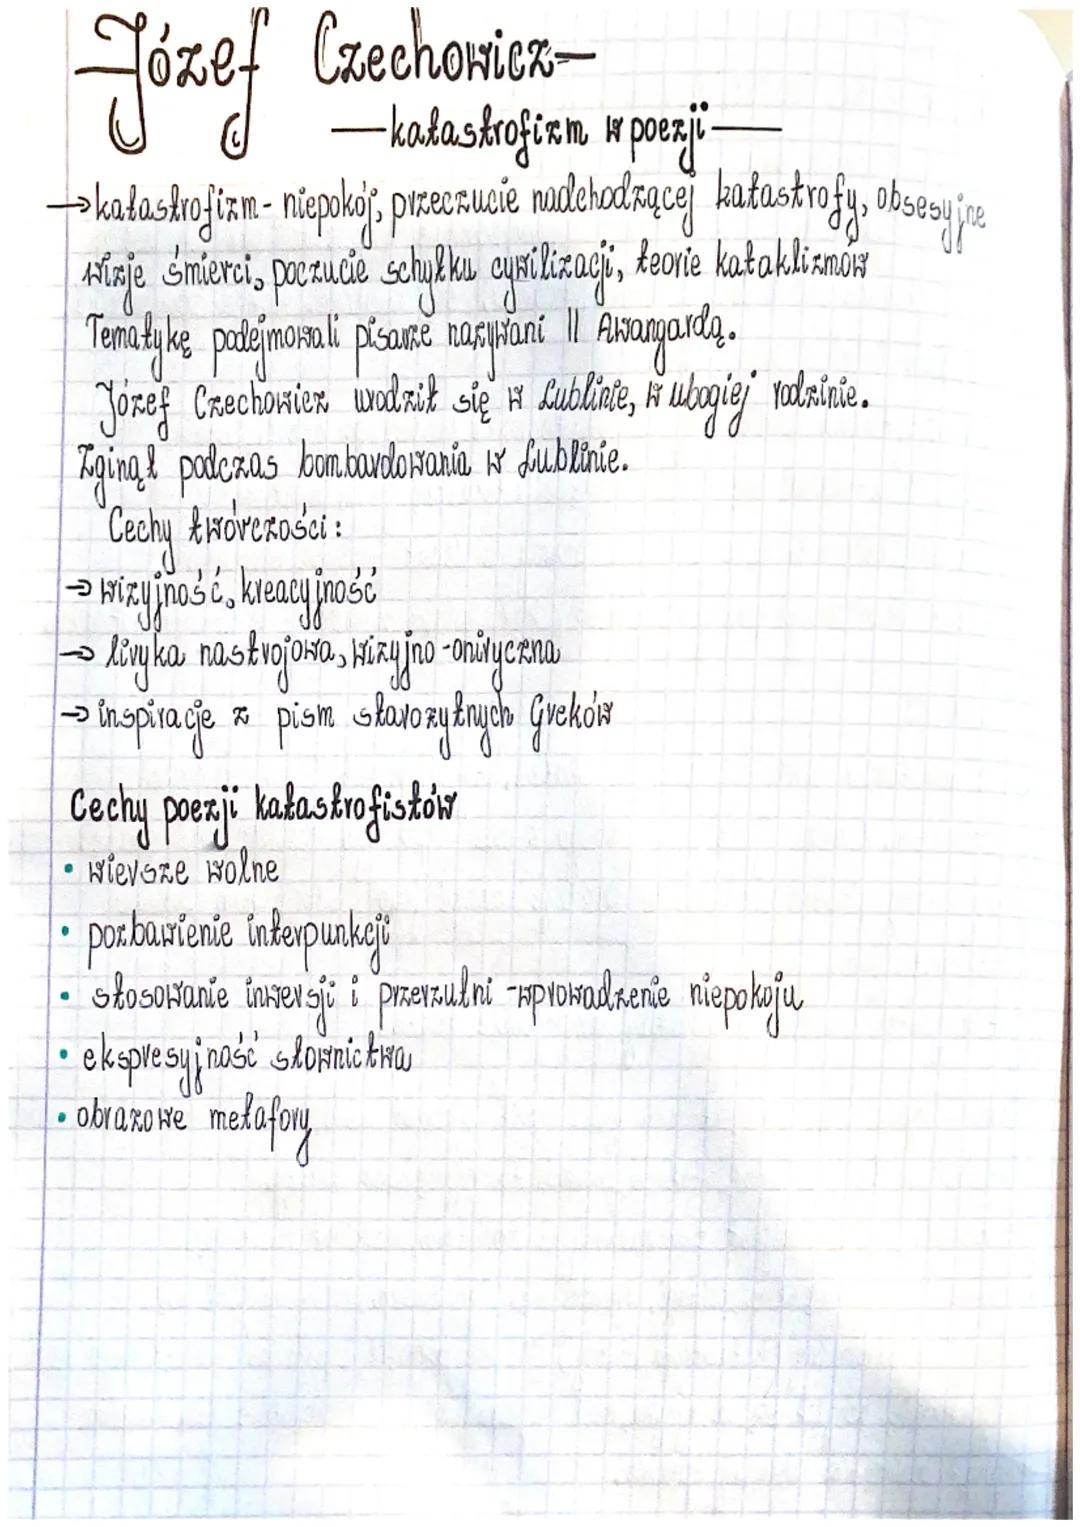 Józef Czechowicz—
—katastrofizm w poezji—
→katastrofizm - niepokój, przeczucie nadchodzącej katastrofy, obsesyjne
wizje śmierci, poczucie schyłku cywilizacji, teorie kataklizmów
Tematykę podejmowali pisarze nazywani II Awangardą.
Józef Czechowicz urodził się w Lublinie, w ubogiej rodzinie.
Zginął podczas bombardowania w Lublinie.
Cechy twórczości:
→ wizyjność, kreacyjność
→ liryka nastrojowa, wizyjno-oniryczna
→ inspiracje z pism starożytnych Greków
Cechy poezji katastrofistów
• wiersze wolne
• pozbawienie interpunkcji
• stosowanie inwersji i przerzutni - wprowadzenie niepokoju
• ekspresyjność słownictwa
• obrazowe metafory